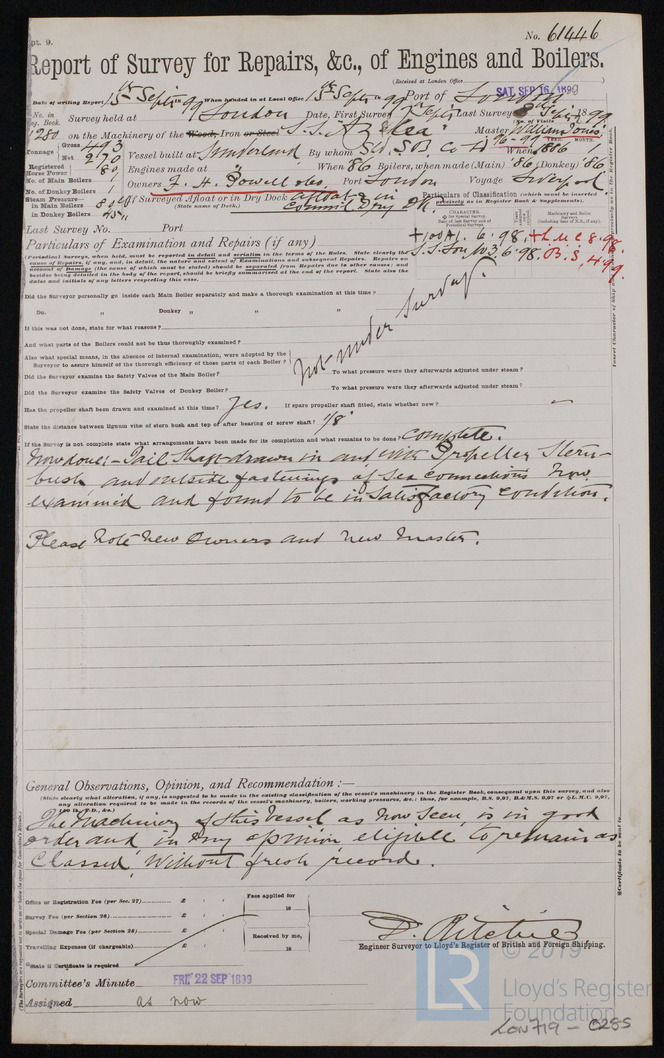 pt. 9.
No. 61446
Report of Survey for Repairs, &c., of Engines and Boilers.
(Received at London Office
SAT. SEP 16 1899
Date of writing Report 15th Sept 1899 When handed in at Local Office 15th Sept 1899 Port of London
No. in Reg. Book. Survey held at London Date, First Survey Sept Last Survey 1899
1280 on the Machinery of the Wood, Iron or Steel S.S. Azalea Master William Jones
Tonnage Gross 493 Net 270 Vessel built at Sunderland By whom S.B. Co When 1886
Registered Horse Power 80 Engines made at When 86 Boilers, when made (Main) 86 (Donkey) 86
No. of Main Boilers 1
No. of Donkey Boilers 1 Owners F. H. Powell & Co. Port London Voyage Liverpool
Steam Pressure in Main Boilers 80 lb If Surveyed Afloat or in Dry Dock afloat & in Dry Dk.
(State name of Dock.)
in Donkey Boilers 45 "
Particulars of Classification (which must be inserted precisely as in Register Book & Supplements).
Last Survey No. Port
+100A1. 6.98, +L.M.C. 8.98
S.S. No. 3, 6.98. B.S, 4.99.
Particulars of Examination and Repairs (if any)
(Periodical Surveys, when held, must be reported in detail and seriatim in the terms of the Rules. State clearly the
cause of Repairs, if any, and, in detail, the nature and extent of Examinations and subsequent Repairs. Repairs on
account of Damage (the cause of which must be stated) should be separated from Repairs due to other causes; and
besides being detailed in the body of the report, should be briefly summarised at the end of the report. State also the
dates and initials of any letters respecting this case.
Did the Surveyor personally go inside each Main Boiler separately and make a thorough examination at this time?
Do. " Donkey " " "
If this was not done, state for what reasons?
And what parts of the Boilers could not be thus thoroughly examined?
Also what special means, in the absence of internal examination, were adopted by the
Surveyor to assure himself of the thorough efficiency of those parts of each Boiler?
Not under Survey.
Did the Surveyor examine the Safety Valves of the Main Boiler? To what pressure were they afterwards adjusted under steam?
Did the Surveyor examine the Safety Valves of Donkey Boiler? To what pressure were they afterwards adjusted under steam?
Has the propeller shaft been drawn and examined at this time? Yes. If spare propeller shaft fitted, state whether new? —
State the distance between lignum vitæ of stern bush and top of after bearing of screw shaft? 1/8"
If the Survey is not complete state what arrangements have been made for its completion and what remains to be done? Complete.
Now done:- Tail Shaft drawn in and with Propeller Stern-
bush and outside fastenings of Sea Connections now
examined and found to be in Satisfactory Condition.
Please Note New Owners and New Master.
General Observations, Opinion, and Recommendation:—
(State clearly what alteration, if any, is suggested to be made in the existing classification of the vessel's machinery in the Register Book, consequent upon this survey, and also
any alteration required to be made in the records of the vessel's machinery, boilers, working pressures, &c.: thus, for example, B.S. 9,97, B.& M.S. 9,97 or L.M.C. 9,97,
The Machinery of this Vessel as now seen, is in good
order and in my opinion eligible to remain as
Classed, Without fresh record.
Office or Registration Fee (per Sec. 27) £ Fees applied for
Survey Fee (per Section 28) £ 18
Special Damage Fee (per Section 28) £ Received by me,
Travelling Expenses (if chargeable) £ 18
D. Ritchie
Engineer Surveyor to Lloyd's Register of British and Foreign Shipping.
State if Certificate is required
Committee's Minute FRI. 22 SEP 1899
Assigned as now
© 2019
LR
Lloyd's Register
Foundation
LON719-0285